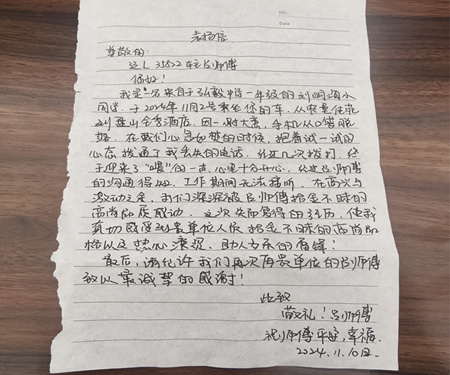 No.
Date
表扬信
尊敬的:
辽L35522车主吕师傅
你好!
我是一名来自于弘毅中学一年级的刘明海小
同学,于2024年11月2号乘坐你的车,从农垦佳苑
到盘山全季酒店,因一时大意,手机从口袋脱
落,在我们心急如焚的时侯,抱着试一试的
心态拨通了我丢失的电话,经过几次拨打,终
于迎来了"喂"的一声,心里十分开心,经过吕师傅
的沟通得知,工作期间无法接听,在高兴与
激动之余,我们深深被吕师傅拾金不昧的
高尚品质感动,这次失而复得的经历,使我
真切感受到贵单位人员拾金不昧的高尚品
格以及热心肠、助人为乐的有缘!
最后,请允许我们再次向贵单位的吕师傅
致以最诚挚的感谢!
此致
敬礼!吕师傅
祝师傅平安,幸福
2024.11.10日